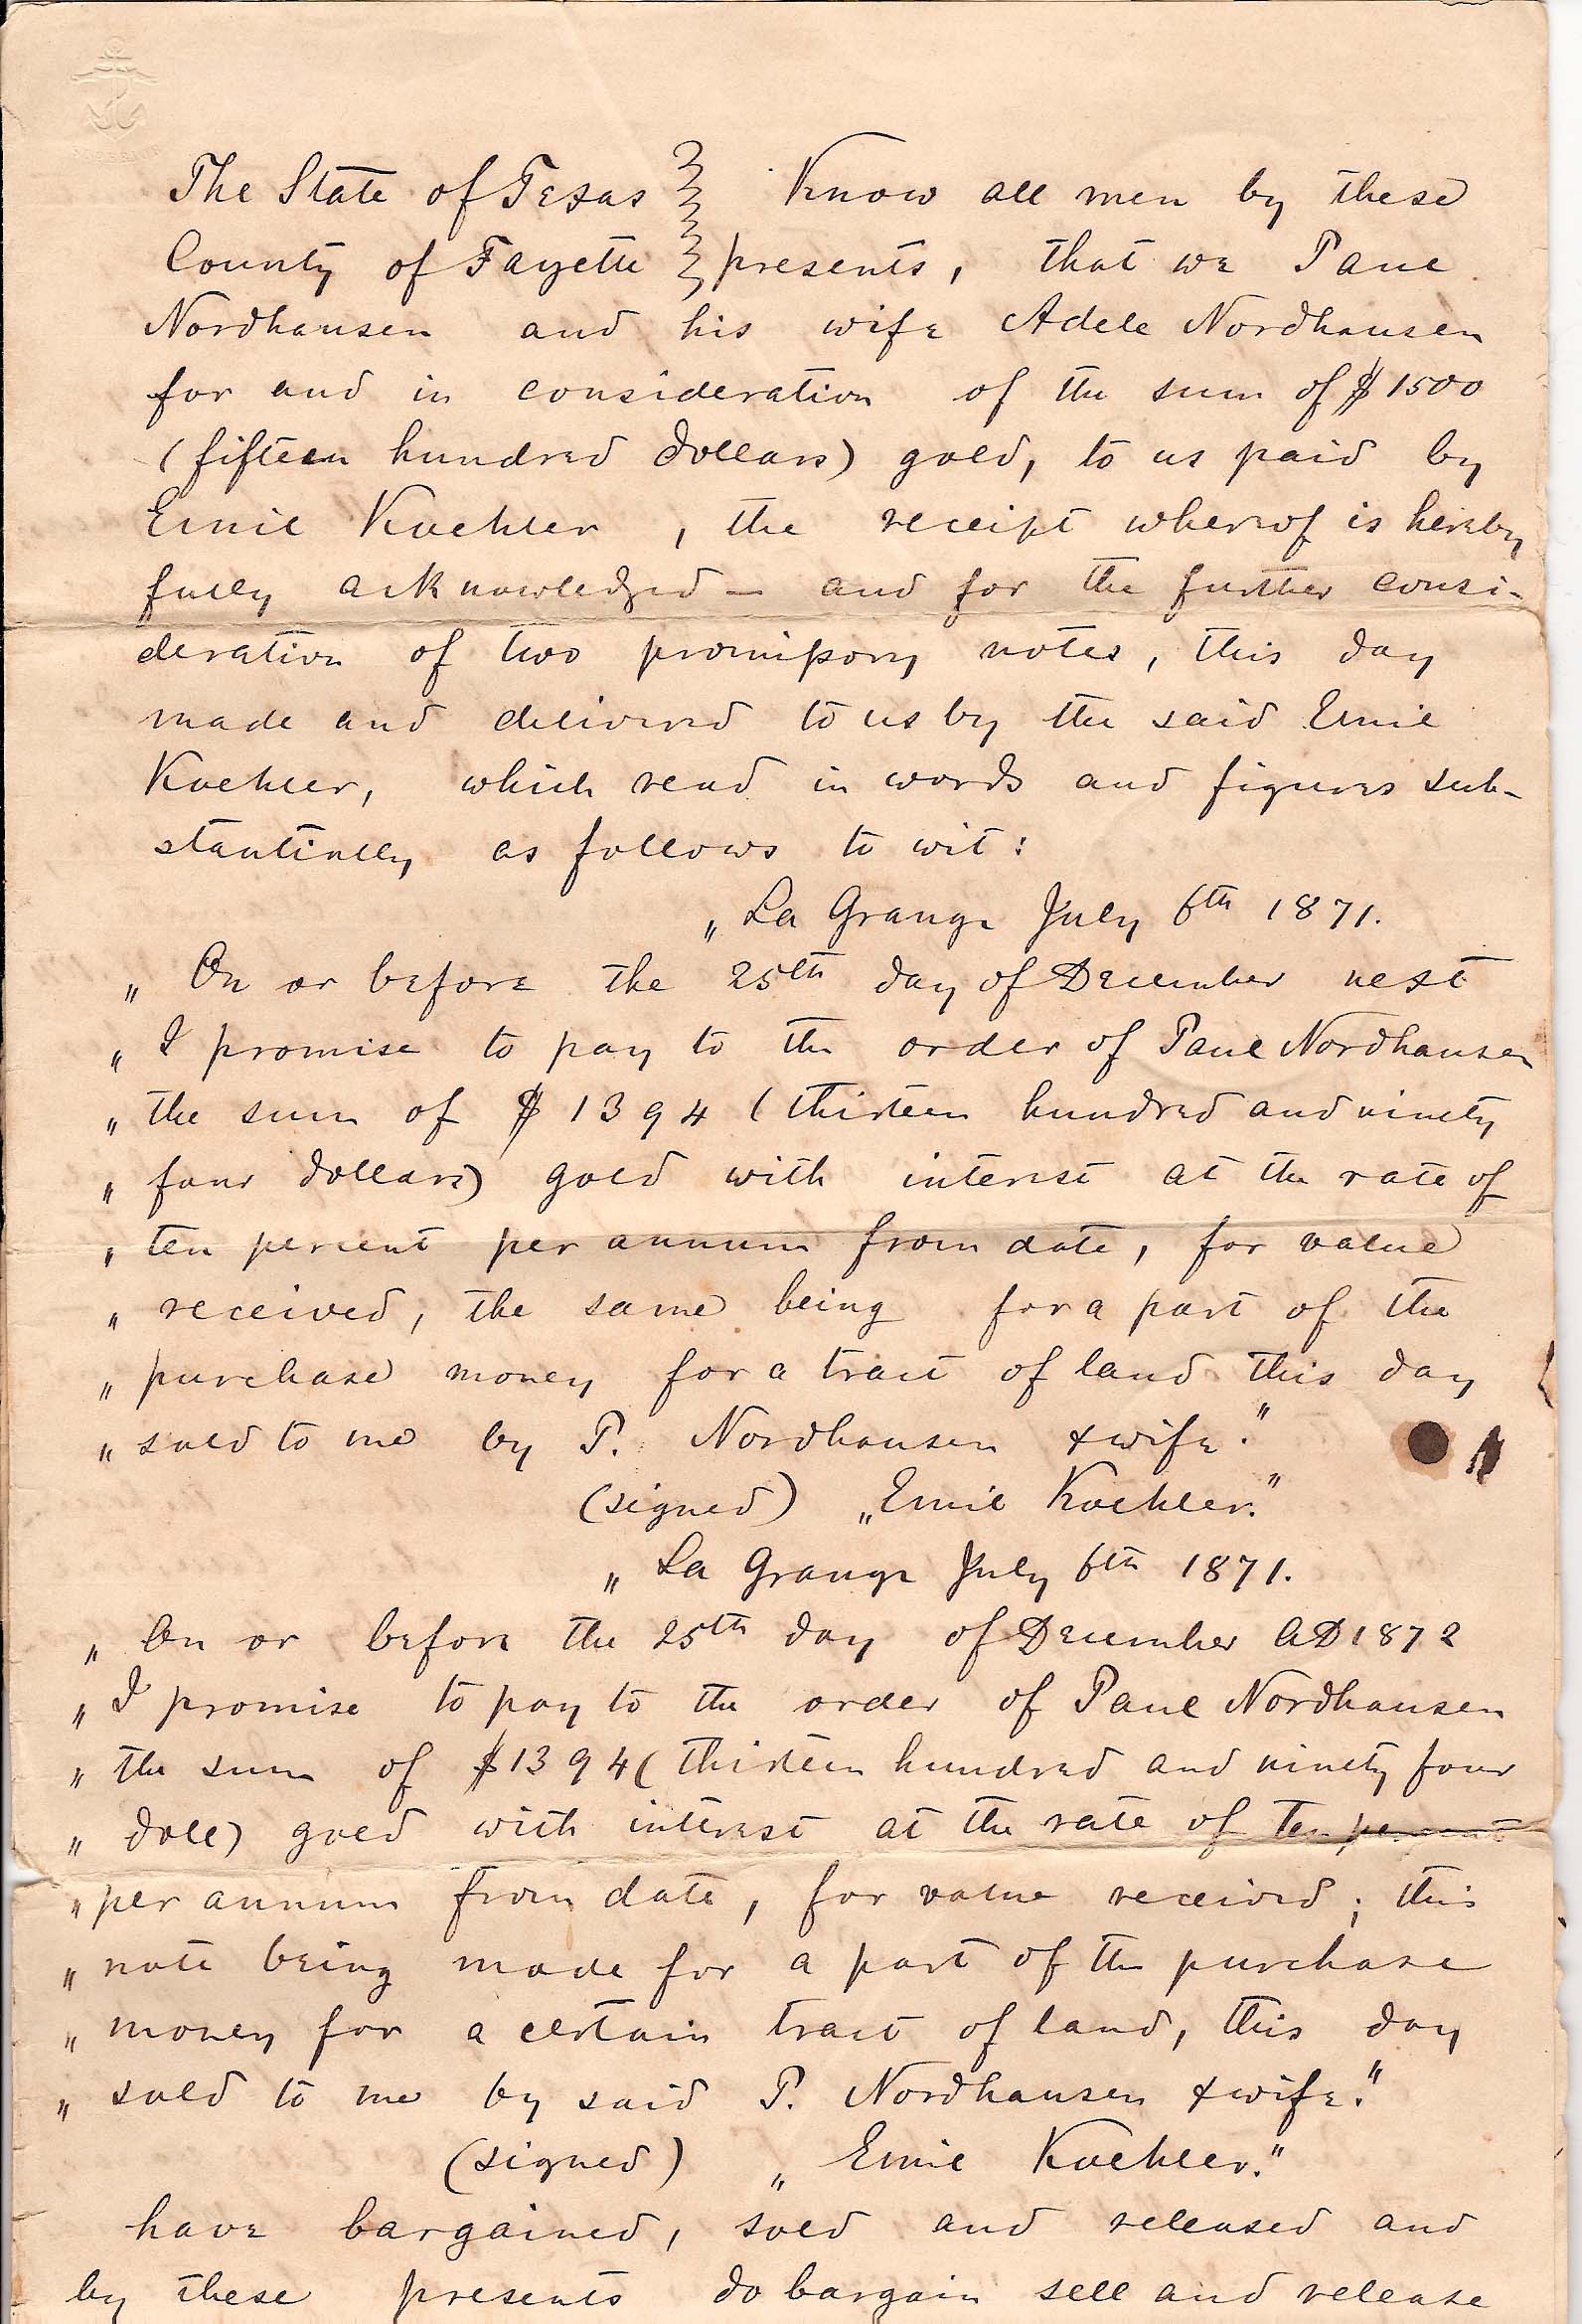 The State of Texas } Know all men by these
County of Fayette } presents, that we Paul
Nordhausen and his wife Adele Nordhausen
for and in consideration of the sum of $1500
(fifteen hundred dollars) gold, to us paid by
Emil Koehler, the receipt whereof is hereby
fully acknowledged — and for the further consi-
deration of two promissory notes, this day
made and delivered to us by the said Emil
Koehler, which read in words and figures sub-
stantially as follows to wit:
„La Grange July 6th 1871.
„ On or before the 25th day of December next
„ I promise to pay to the order of Paul Nordhausen
„ the sum of $1394 (thirteen hundred and ninety
„ four dollars) gold with interest at the rate of
„ ten percent per annum from date, for value
„ received, the same being for a part of the
„ purchase money for a tract of land this day
„ sold to me by P. Nordhausen & wife."
(signed) „Emil Koehler."
„ La Grange July 6th 1871.
„ On or before the 25th day of December AD 1872
„ I promise to pay to the order of Paul Nordhausen
„ the sum of $1394 (thirteen hundred and ninety four
„ doll) gold with interest at the rate of ten percent
„ per annum from date, for value received; this
„ note being made for a part of the purchase
„ money for a certain tract of land, this day
„ sold to me by said P. Nordhausen & wife."
(signed) „ Emil Koehler."
have bargained, sold and released and
by these presents do bargain sell and release